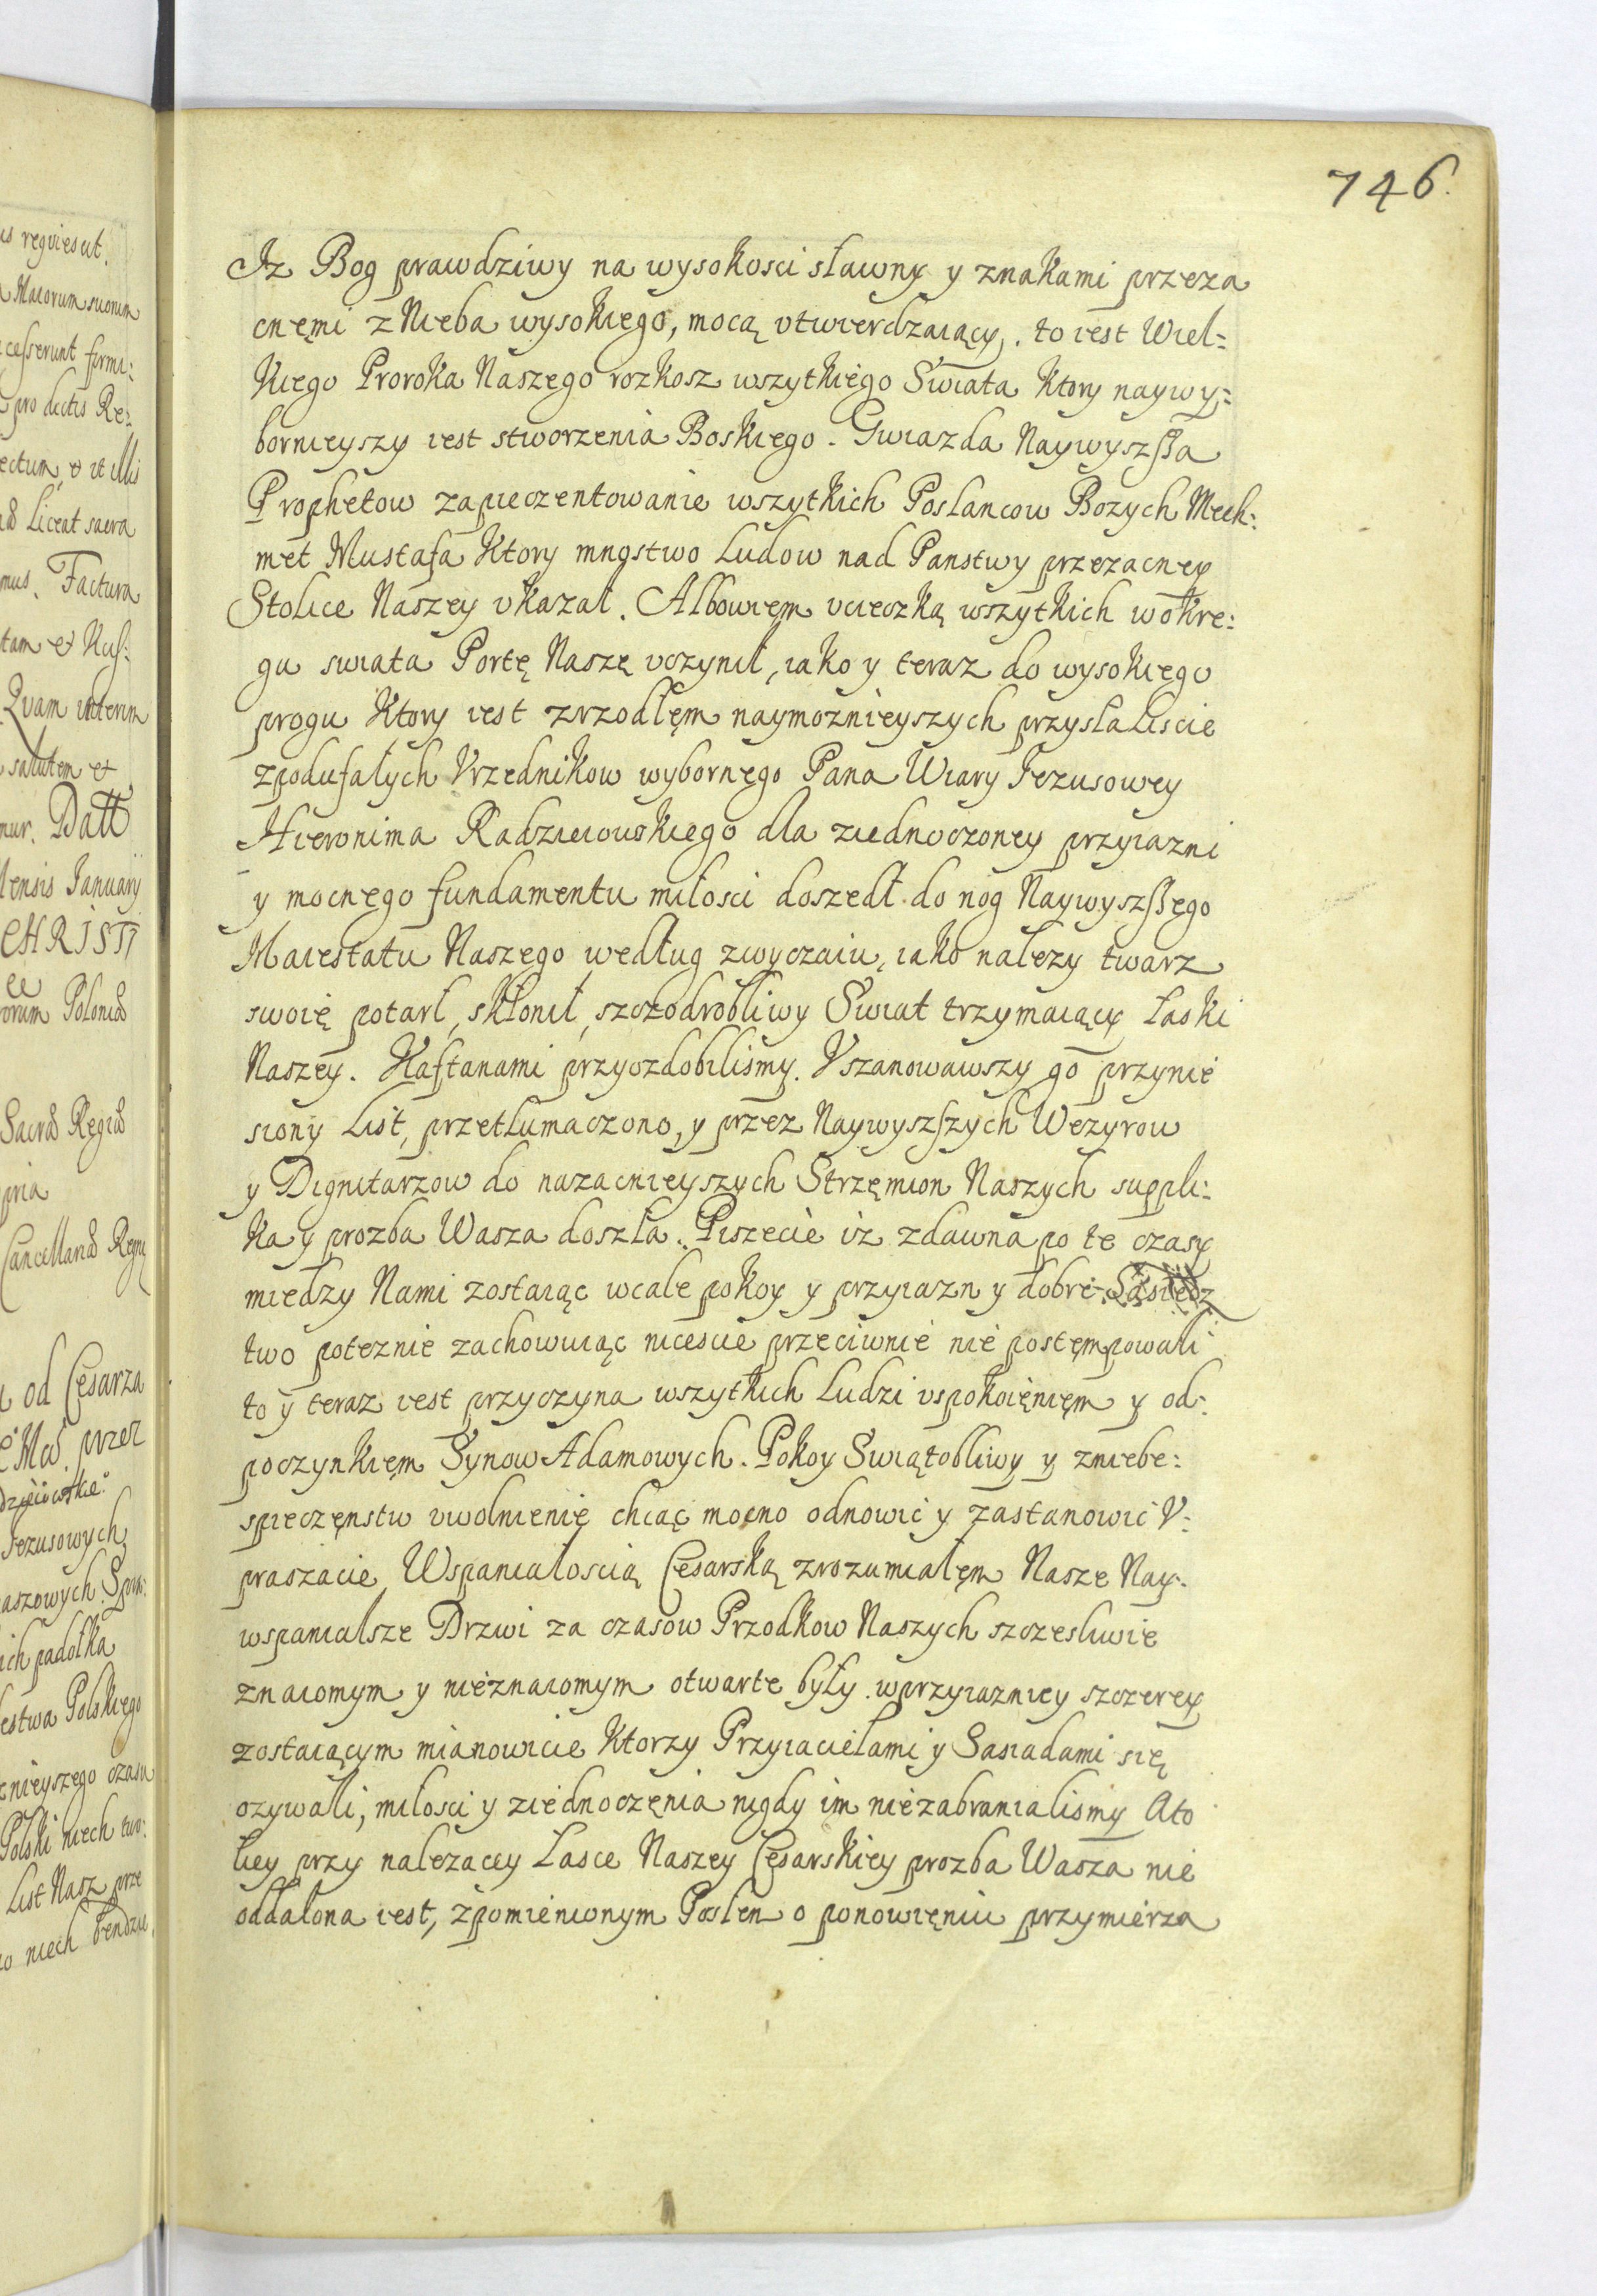 746.
Iz Bog prawdziwy na wysokosci sławny y znakami przeza
cnęmi z Nieba wysokiego, mocą vtwierdzaiący, to iest Wiel=
kiego Proroka Naszego rozkosz wszytkiego Swiata ktory naywy=
bornieyszy iest stworzenia Boskiego. Gwiazda Naywyszßa
Prophetow zapieczentowanie wszytkich Poslancow Bozych Mech:
met Mustafa Ktory mngstwo Ludow nad Panstwy przezacney
Stolice Naszey vkazał. Albowiem vcieczką wszytkich w okre:
gu swiata Portę Naszę vczynił, iako y teraz do wysokiego
progu Ktory iest zrzodłęm naymoznieyszych przysłaliscie
z podufałych Vrzednikow wybornego Pana Wiary Jezusowey
Hieronima Radzieiowskiego dla ziednoczoney przyiazni
y mocnego fundamentu miłosci doszedł do nog Naywyszßego
Maiestatu Naszego według zwyczaiu, iako nalezy twarz
swoię potarł, skłonił, szczodrobliwy Swiat trzymaiący łaski
Naszey. Kaftanami przyozdobilismy. Vszanowawszy go przynie
siony List, przetłumaczono, y przez Naywyszszych Wezyrow
y Dignitarzow do nazacnieyszych Strzęmion Naszych suppli:
ka y prozba Wasza doszła. Piszecie iz zdawna po te czasy
miedzy Nami zostaiąc wcale pokoy y przyiazn y dobre Sąsiedz
two poteznie zachowuiąc niceście przeciwnie nie postęmpowali
to y teraz iest przyczyna wszytkich Ludzi vspokoięnięm y od:
poczynkięm Synow Adamowych. Pokoy Swiątobliwy y z niebe:
spieczęnstw vwolnienię chcąc mocno odnowić y zastanowić V:
praszacie, Wspaniałoscią Cesarską zrozumiałęm Nasze Nay:
wspanialsze Drzwi za czasow Przodkow Naszych szczesliwie
znaiomym y nieznaiomym otwarte były. w przyiazniey szczerey
zostaiącym mianowicie Ktorzy Przyiacielami y Sasiadami się
ozywali, miłosci y ziednoczęnia nigdy im niezabranialismy Ato
liey przy nalezacey Łasce Naszey Cesarskiey prozba Wasza nie
oddalona iest, z pomienionym Posłen o ponowięniu przymierza